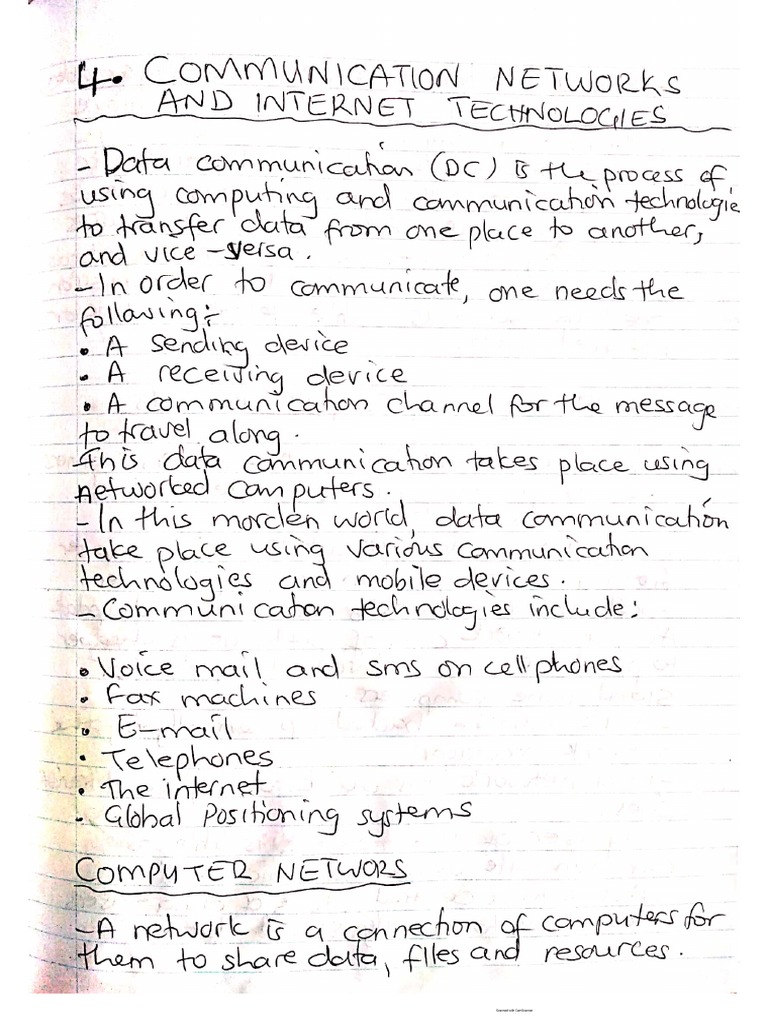 4. COMMUNICATION NETWORKS
AND INTERNET TECHNOLOGIES
- Data communication (DC) is the process of
using computing and communication technologie
to transfer data from one place to another,
and vice-versa.
- In order to communicate, one needs the
following:-
• A sending device
• A receiving device
• A communication channel for the message
to travel along.
This data communication takes place using
networked computers.
- In this morden world, data communication
take place using various communication
technologies and mobile devices.
- Communication technologies include:
• Voice mail and sms on cell phones
• Fax machines
• E-mail
• Telephones
• The internet
• Global Positioning systems
COMPUTER NETWORS
- A network is a connection of computers for
them to share data, files and resources.
Scanned with CamScanner